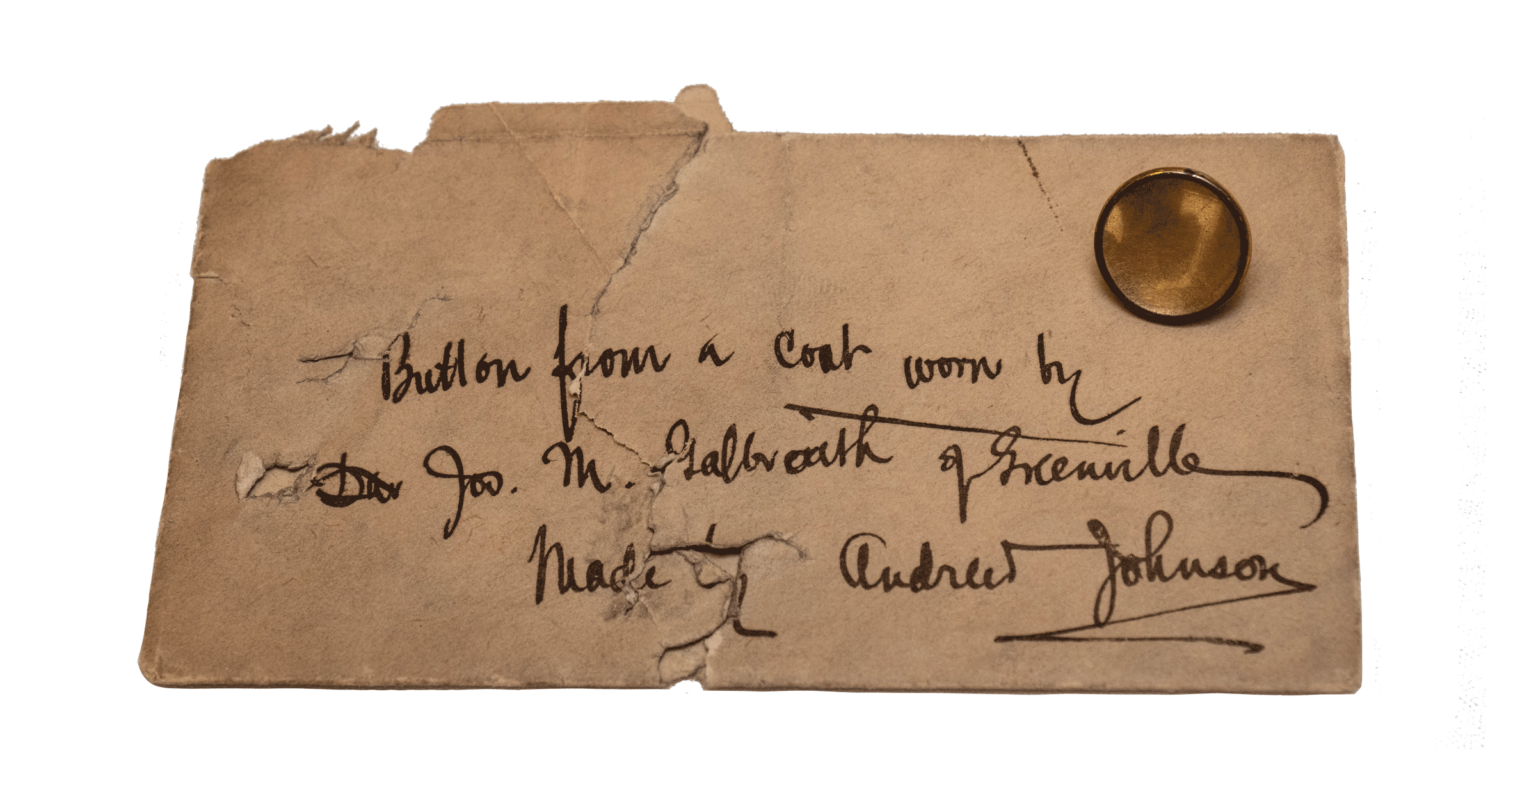 Button from a coat worn by
Dr Jos. M. Galbreath of Greenville
Made by Andrew Johnson